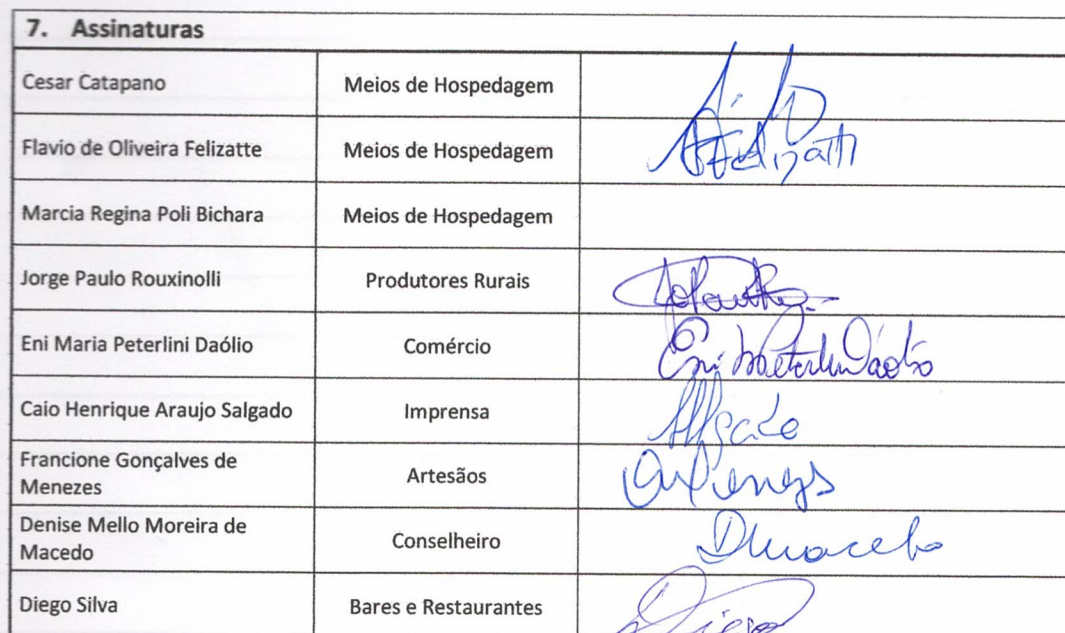 7. Assinaturas
Cesar Catapano Meios de Hospedagem
Flavio de Oliveira Felizatte Meios de Hospedagem
Marcia Regina Poli Bichara Meios de Hospedagem
Jorge Paulo Rouxinolli Produtores Rurais
Eni Maria Peterlini Daólio Comércio
Caio Henrique Araujo Salgado Imprensa
Francione Gonçalves de
Menezes Artesãos
Denise Mello Moreira de
Macedo Conselheiro
Diego Silva Bares e Restaurantes Diego